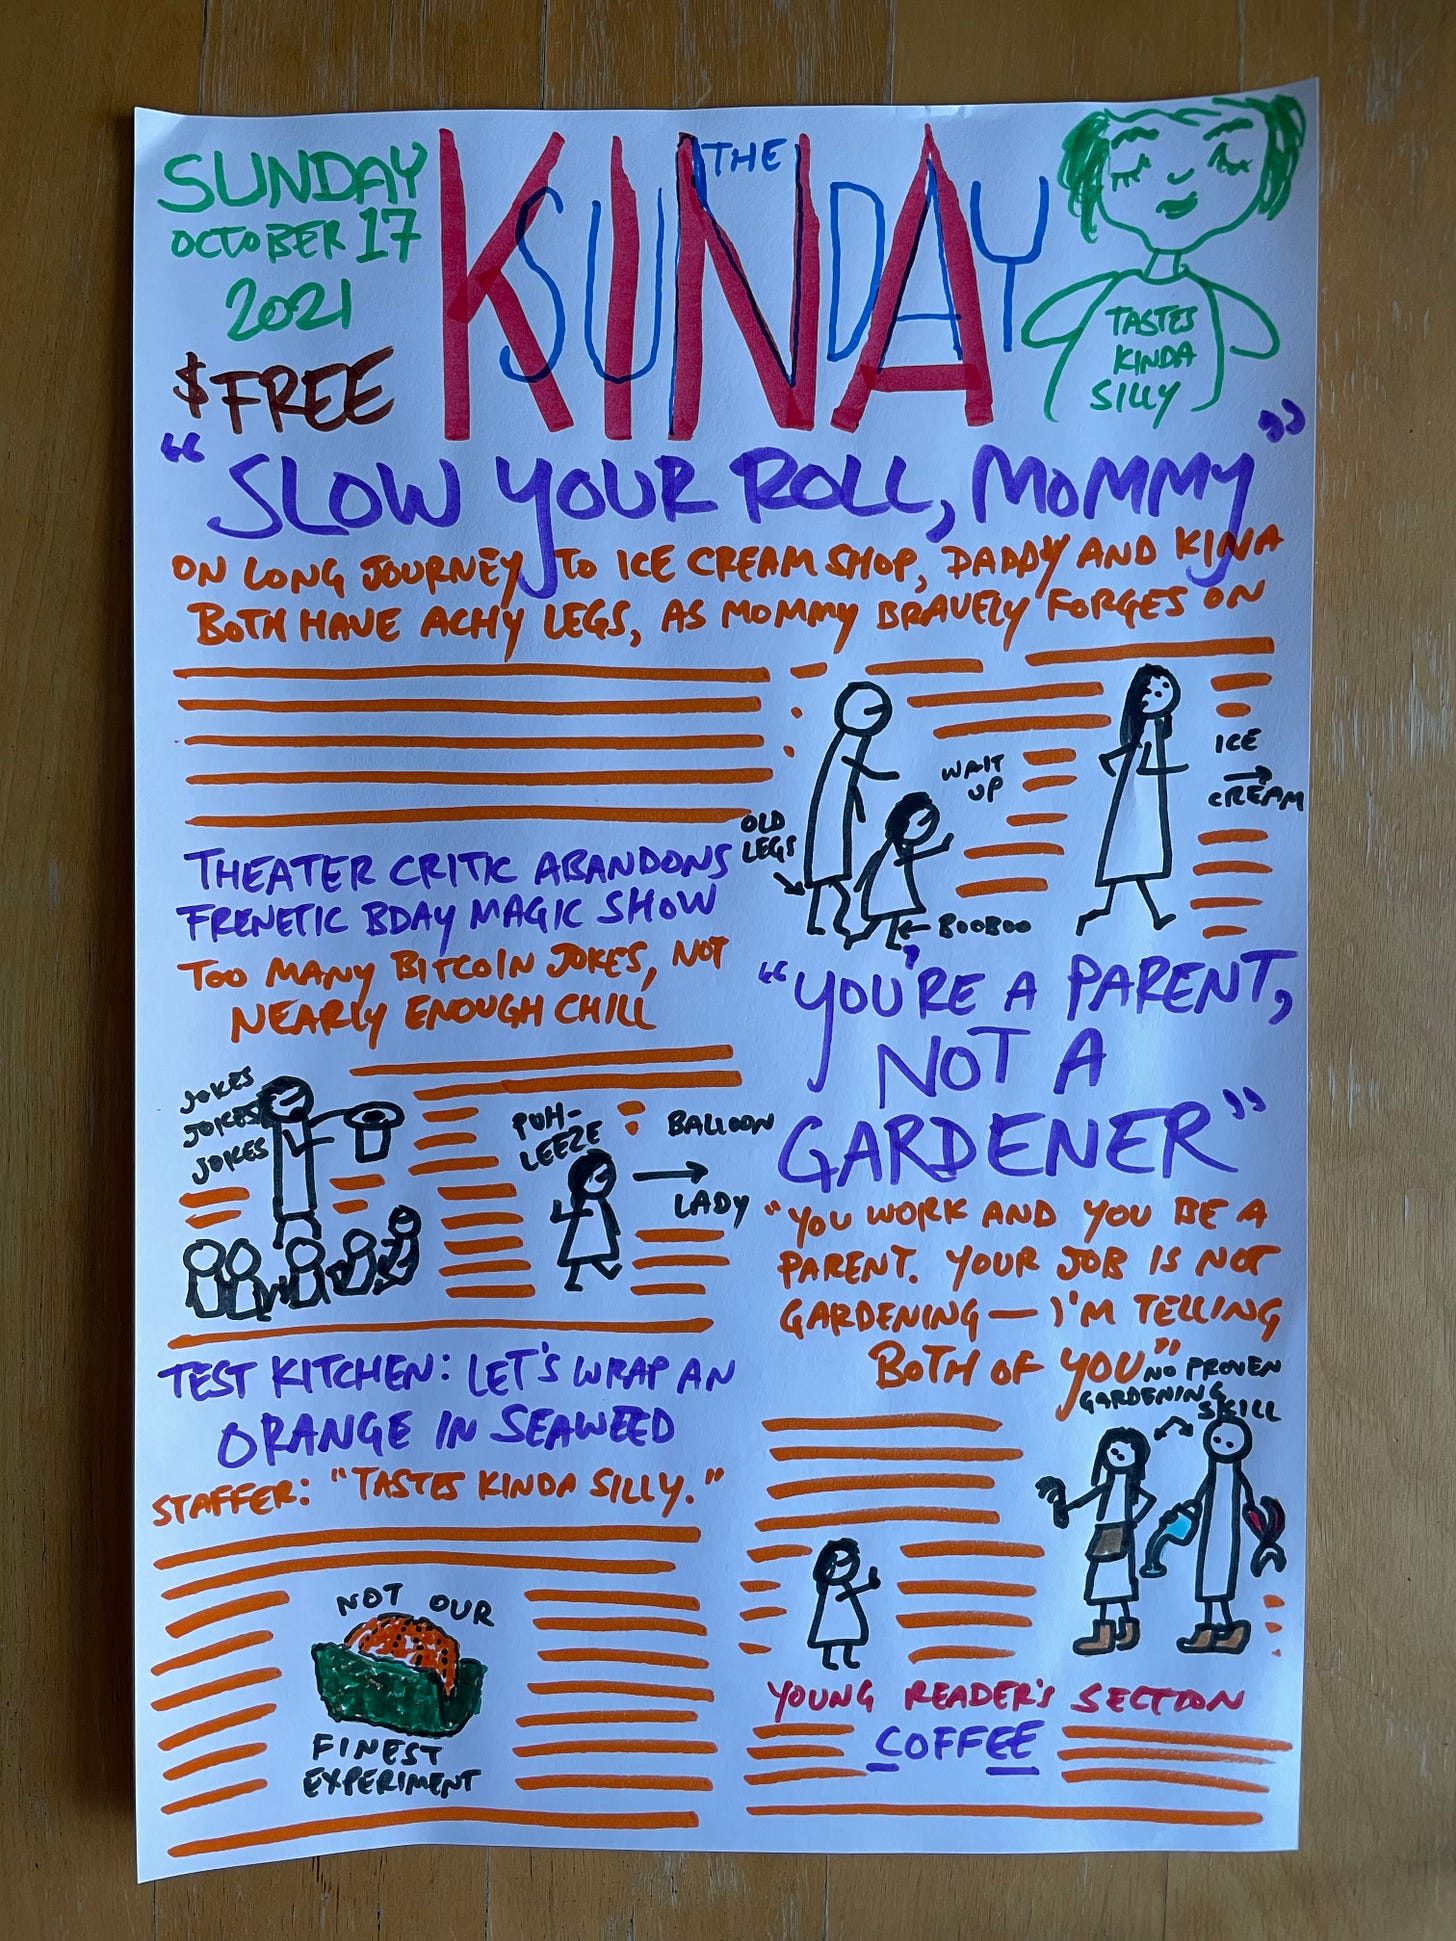 SUNDAY
OCTOBER 17
2021
$FREE
THE
SUNDAY
KINA
TASTES
KINDA
SILLY
"SLOW YOUR ROLL, MOMMY"
ON LONG JOURNEY TO ICE CREAM SHOP, DADDY AND KINA
BOTH HAVE ACHY LEGS, AS MOMMY BRAVELY FORGES ON
OLD
LEGS
WAIT
UP
BOOBOO
ICE
CREAM
THEATER CRITIC ABANDONS
FRENETIC BDAY MAGIC SHOW
TOO MANY BITCOIN JOKES, NOT
NEARLY ENOUGH CHILL
JOKES
JOKES
JOKES
PUH-
LEEZE
BALLOON
LADY
"YOU'RE A PARENT,
NOT A
GARDENER"
"YOU WORK AND YOU BE A
PARENT. YOUR JOB IS NOT
GARDENING — I'M TELLING
BOTH OF YOU"
NO PROVEN
GARDENING
SKILL
TEST KITCHEN: LET'S WRAP AN
ORANGE IN SEAWEED
STAFFER: "TASTES KINDA SILLY."
NOT OUR
FINEST
EXPERIMENT
YOUNG READER'S SECTION
COFFEE